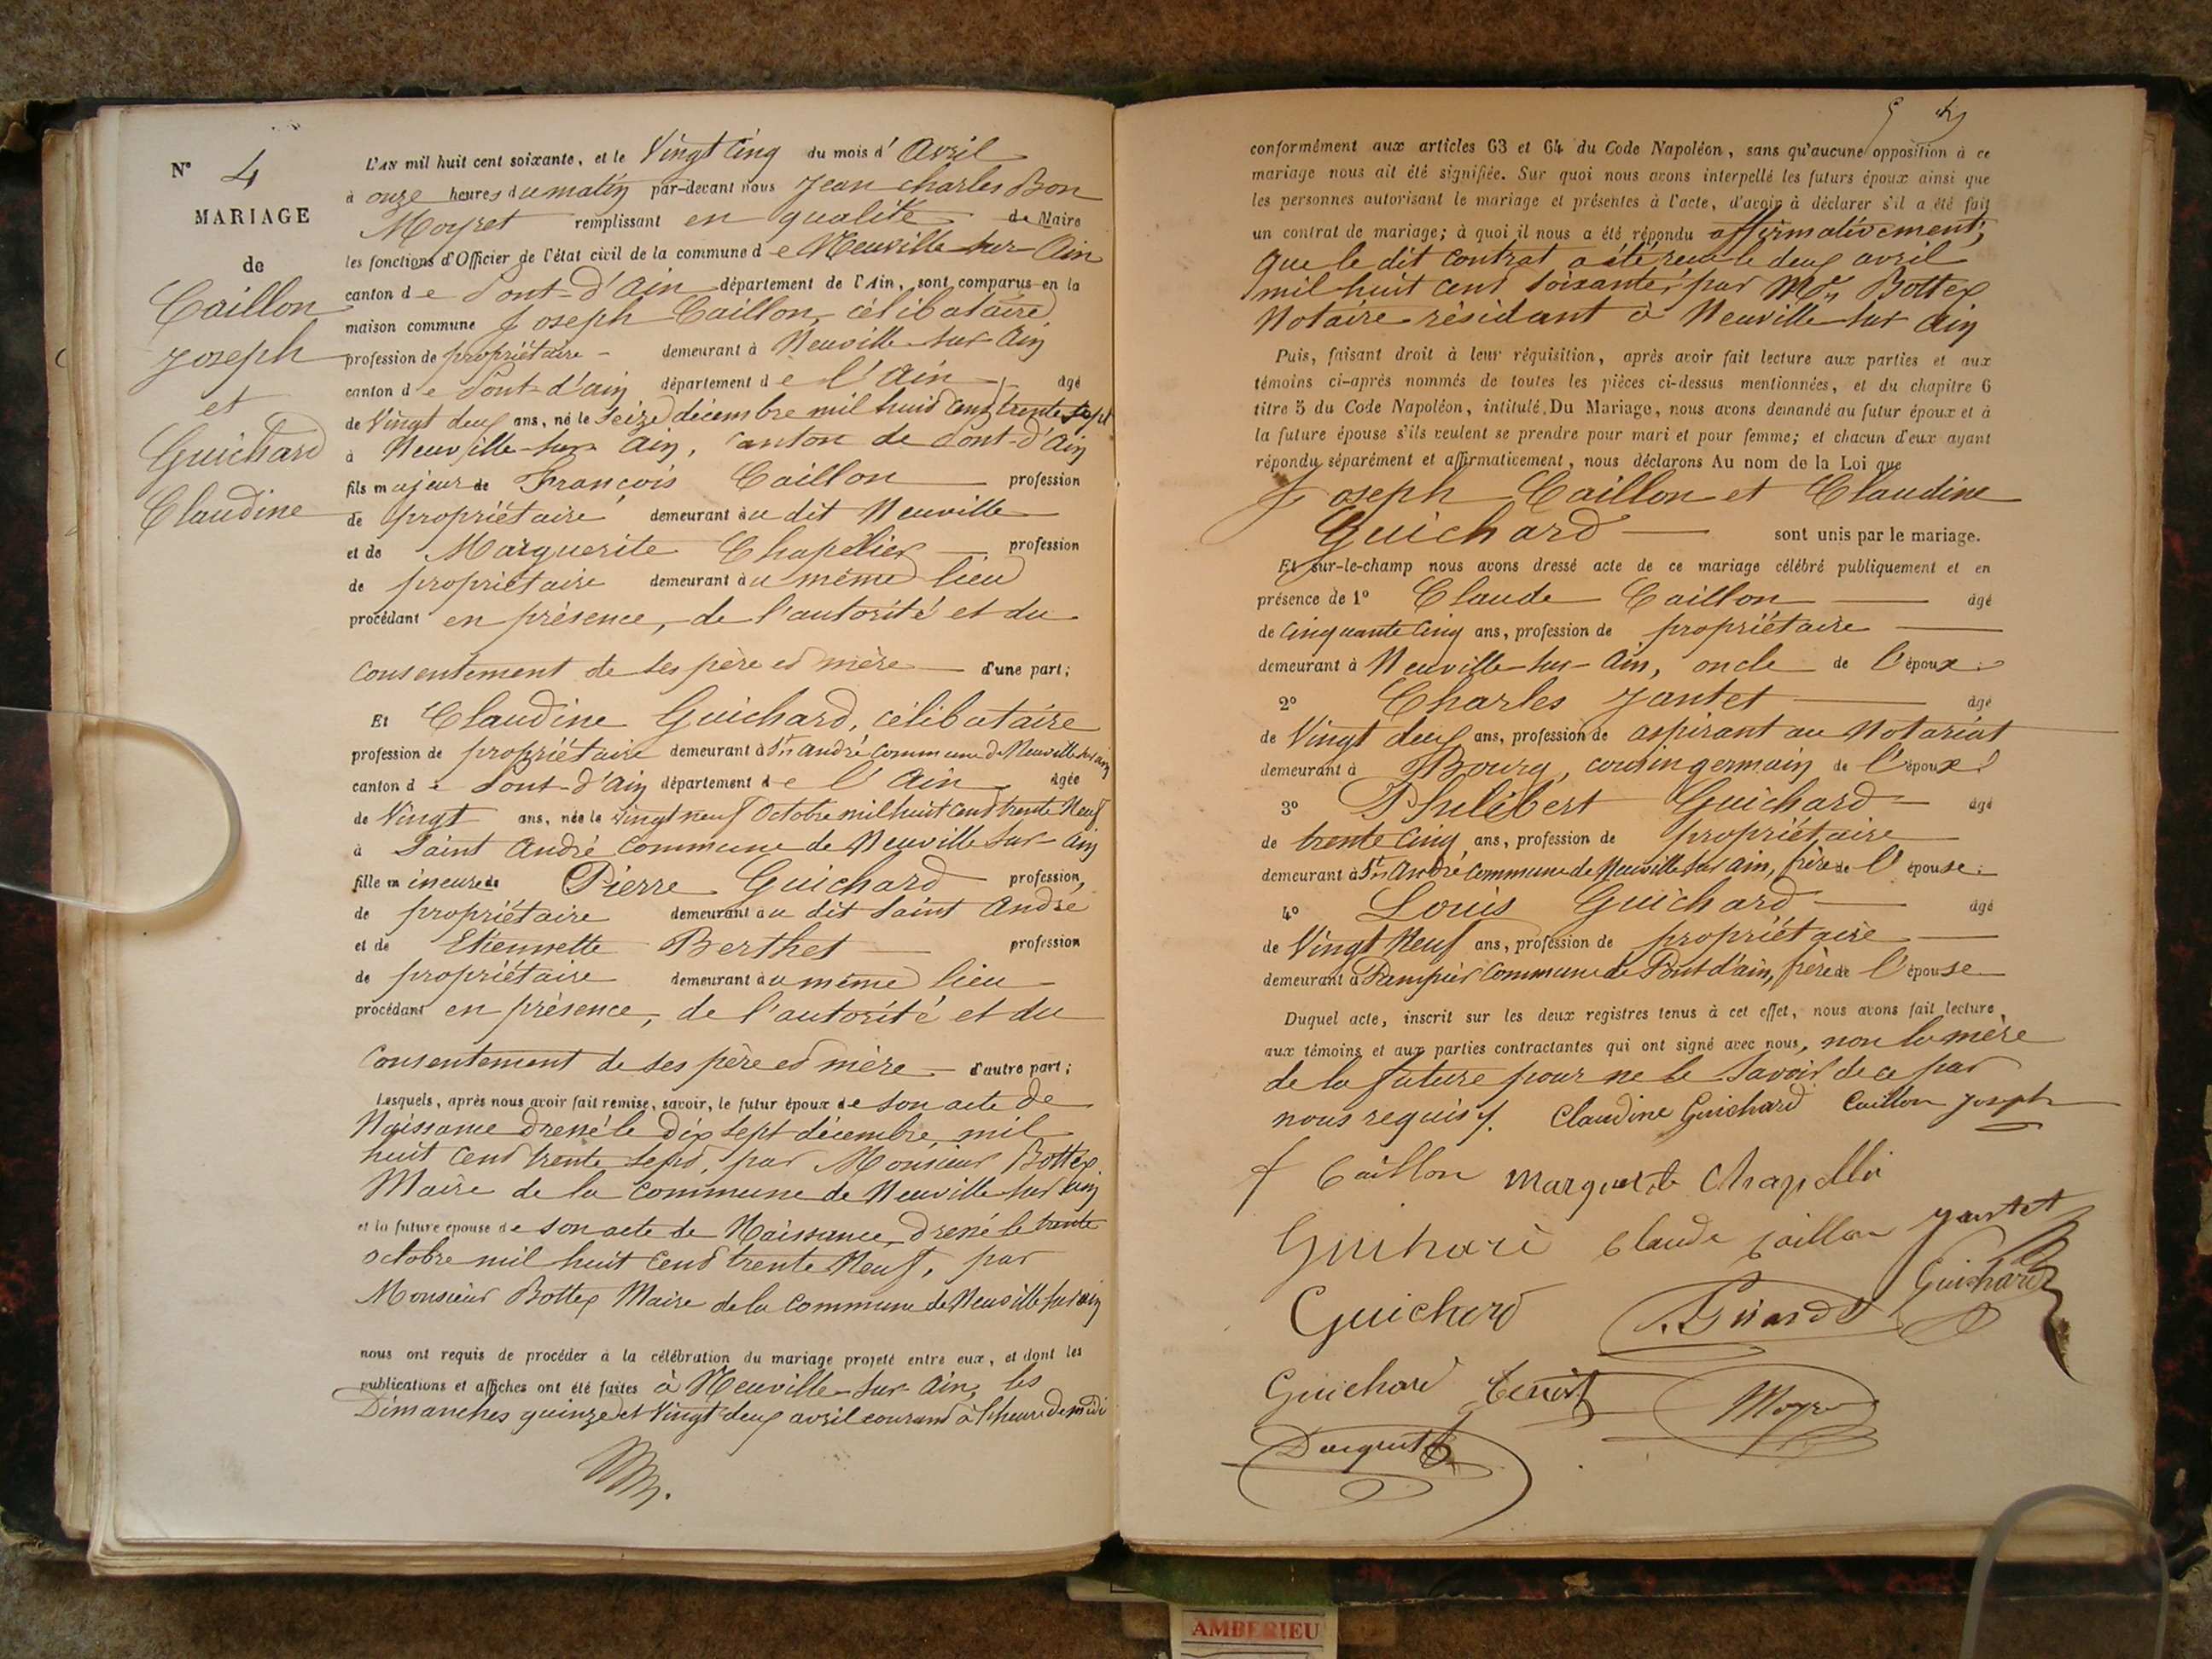 N° 4
MARIAGE
de
Caillon
Joseph
et
Guichard
Claudine
L'AN mil huit cent soixante, et le Vingt Cinq du mois d' Avril
à onze heures du matin par-devant nous Jean Charles Bon
Moyret remplissant en qualité de Maire
les fonctions d'Officier de l'état civil de la commune de Neuville sur Ain
canton de Pont-d'Ain département de l'Ain, sont comparus en la
maison commune Joseph Caillon, célibataire
profession de propriétaire - demeurant à Neuville sur Ain
canton de Pont-d'ain département de l'Ain, âgé
de Vingt deux ans, né le Seize décembre mil huit cent trente sept
à Neuville sur Ain, canton de Pont-d'Ain
fils majeur de François Caillon profession
de propriétaire demeurant au dit Neuville
et de Marguerite Chapellier profession
de propriétaire demeurant au même lieu
procédant en présence, de l'autorité et du
consentement de ses père et mère d'une part;
Et Claudine Guichard, célibataire
profession de propriétaire demeurant à St André commune de Neuville sur ain
canton de Pont-d'Ain département de l'Ain âgée
de Vingt ans, née le vingt neuf Octobre mil huit cent trente Neuf
à Saint André commune de Neuville sur Ain
fille mineure de Pierre Guichard profession
de propriétaire demeurant au dit Saint André
et de Etiennette Berthet profession
de propriétaire demeurant au même lieu
procédant en présence, de l'autorité et du
consentement de ses père et mère d'autre part;
Lesquels, après nous avoir fait remise, savoir, le futur époux de son acte de
Naissance dressé le dix sept décembre mil
huit cent trente sept, par Monsieur Bottex
Maire de la commune de Neuville sur ain
et la future épouse de son acte de Naissance dressé le trente
octobre mil huit cent trente Neuf, par
Monsieur Bottex Maire de la commune de Neuville sur ain
nous ont requis de procéder à la célébration du mariage projeté entre eux, et dont les
publications et affiches ont été faites à Neuville-sur-Ain, les
Dimanches quinze et Vingt deux avril courant à l'heure de midi
conformément aux articles 63 et 64 du Code Napoléon, sans qu'aucune opposition à ce
mariage nous ait été signifiée. Sur quoi nous avons interpellé les futurs époux ainsi que
les personnes autorisant le mariage et présentes à l'acte, d'avoir à déclarer s'il a été fait
un contrat de mariage; à quoi il nous a été répondu affirmativement,
que le dit contrat a été reçu le deux avril
mil huit cent soixante, par Me Bottex
Notaire résidant à Neuville sur Ain
Puis, faisant droit à leur réquisition, après avoir fait lecture aux parties et aux
témoins ci-après nommés de toutes les pièces ci-dessus mentionnées, et du chapitre 6
titre 5 du Code Napoléon, intitulé Du Mariage, nous avons demandé au futur époux et à
la future épouse s'ils veulent se prendre pour mari et pour femme; et chacun d'eux ayant
répondu séparément et affirmativement, nous déclarons Au nom de la Loi que
Joseph Caillon et Claudine
Guichard sont unis par le mariage.
Et sur-le-champ nous avons dressé acte de ce mariage célébré publiquement et en
présence de 1° Claude Caillon âgé
de cinquante cinq ans, profession de propriétaire
demeurant à Neuville-sur-Ain, oncle de l'époux.
2° Charles Jantet âgé
de Vingt deux ans, profession de aspirant au Notariat
demeurant à Bourg, cousin germain de l'époux
3° Philibert Guichard âgé
de trente cinq ans, profession de propriétaire
demeurant à St André commune de Neuville sur ain, frère de l'épouse.
4° Louis Guichard âgé
de Vingt Neuf ans, profession de propriétaire
demeurant à Pampier commune de Pont d'ain, frère de l'épouse
Duquel acte, inscrit sur les deux registres tenus à cet effet, nous avons fait lecture
aux témoins et aux parties contractantes qui ont signé avec nous, non la mère
de la future pour ne le savoir de ce par
nous requis. Claudine Guichard Caillon Joseph
f Caillon Marguerite Chapellier
Guichard Claude Caillon Jantet
Guichard P. Girardet Guichard
Guichard Benoit Moyret
AMBERIEU